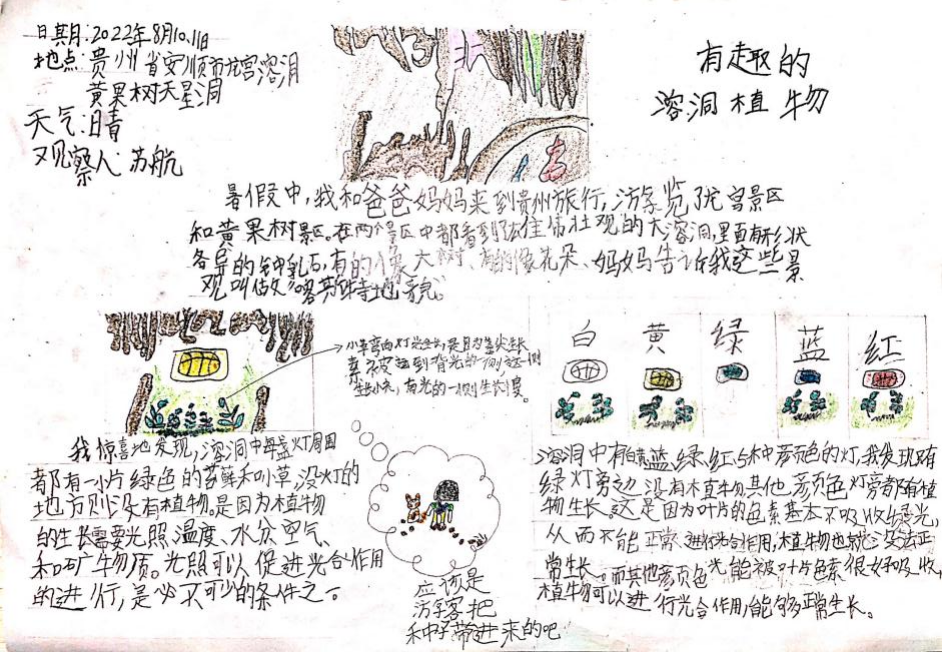 日期:2022年8月10.11日
地点:贵州省安顺市龙宫溶洞
黄果树天星洞
天气:晴
观察人:苏航
有趣的
溶洞植物
暑假中,我和爸爸妈妈来到贵州旅行,游览了龙宫景区
和黄果树景区。在两个景区中都看到了壮观的大溶洞,里面有形状
各异的钟乳石,有的像大树、有的像花朵、妈妈告诉我这些景
观叫做“喀斯特地貌”。
小草弯向灯光生长,是因为生长
素被运到背光的一侧,这一侧
生长快,有光的一侧生长慢。
白
黄
绿
蓝
红
我惊喜地发现,溶洞中每盏灯周围
都有一片绿色的苔藓和小草,没灯的
地方则没有植物。是因为植物
的生长需要光照、温度、水分、空气、
和矿物质。光照可以促进光合作用
的进行,是必不可少的条件之一。
应该是
游客把
种子带进来的吧
溶洞中有白黄蓝绿红5种颜色的灯,我发现只有
绿灯旁边没有植物,其他颜色灯旁都有植
物生长,这是因为叶片的色素基本不吸收绿光,
从而不能正常进行光合作用,植物也就没法正
常生长。而其他颜色光能被叶片色素很好吸收,
植物可以进行光合作用,能够正常生长。